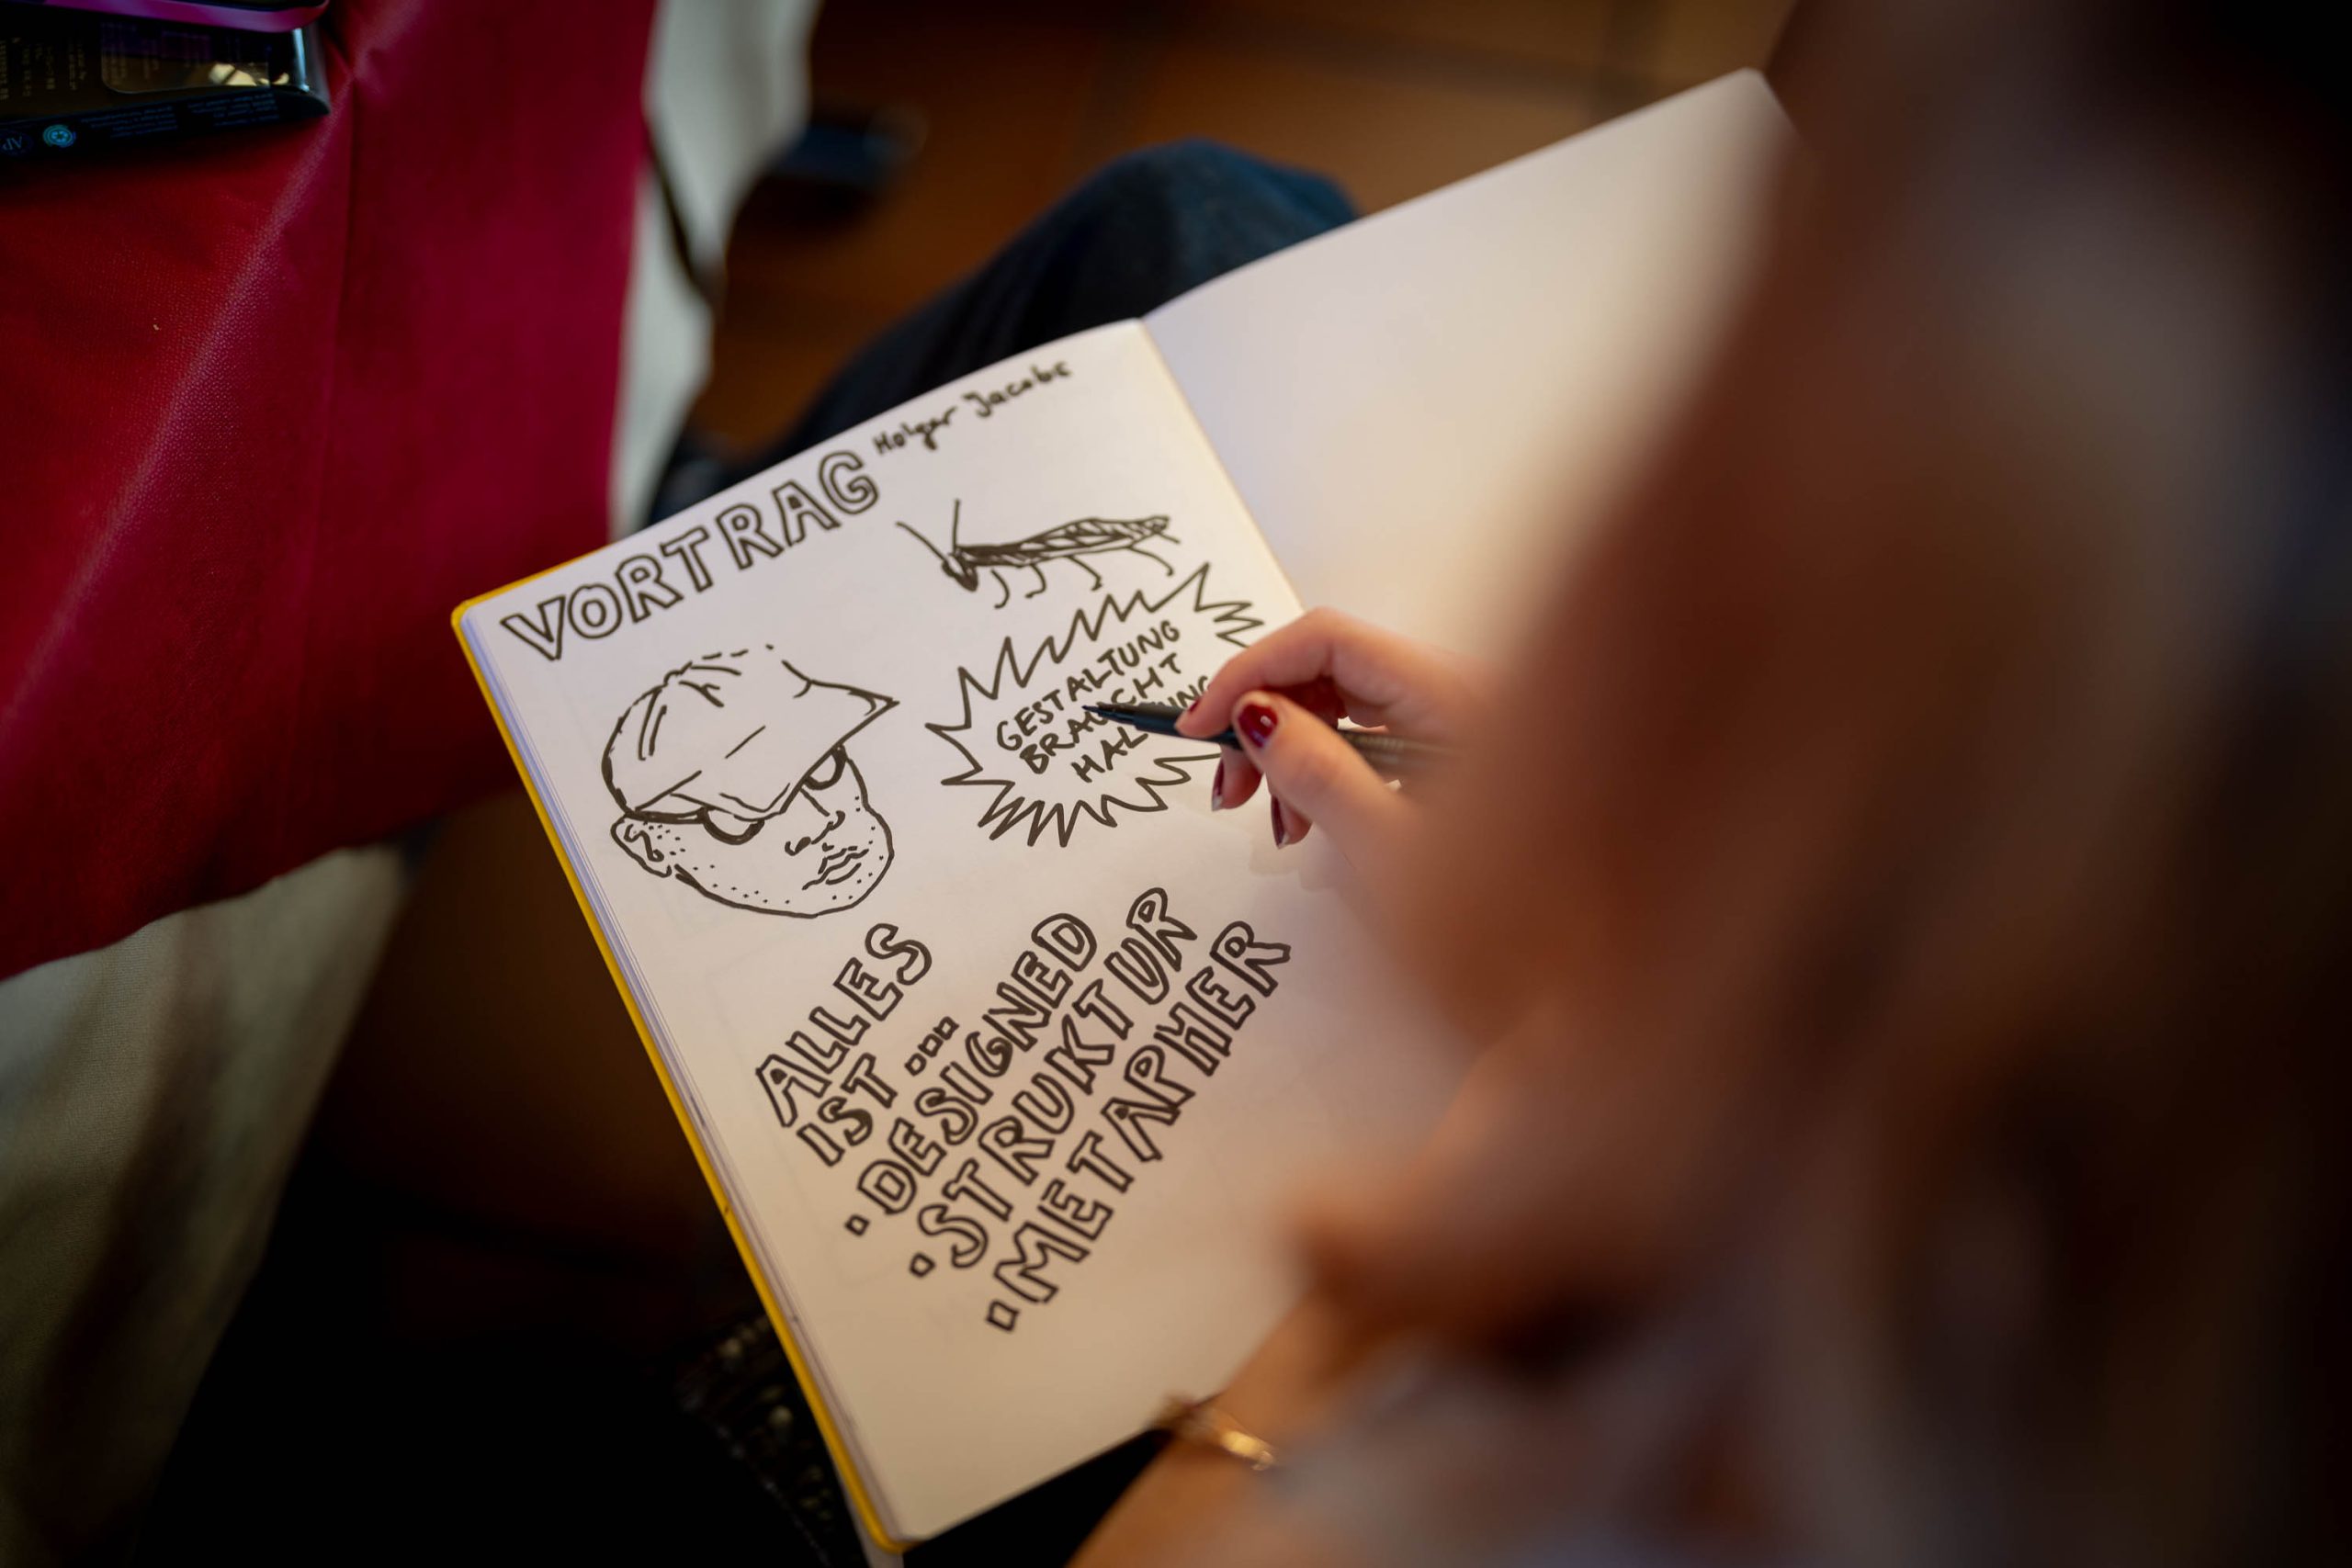 VORTRAG Holger Jacobs
GESTALTUNG
BRAUCHT
ALLES
IST ...
· DESIGNED
· STRUKTUR
· METAPHER